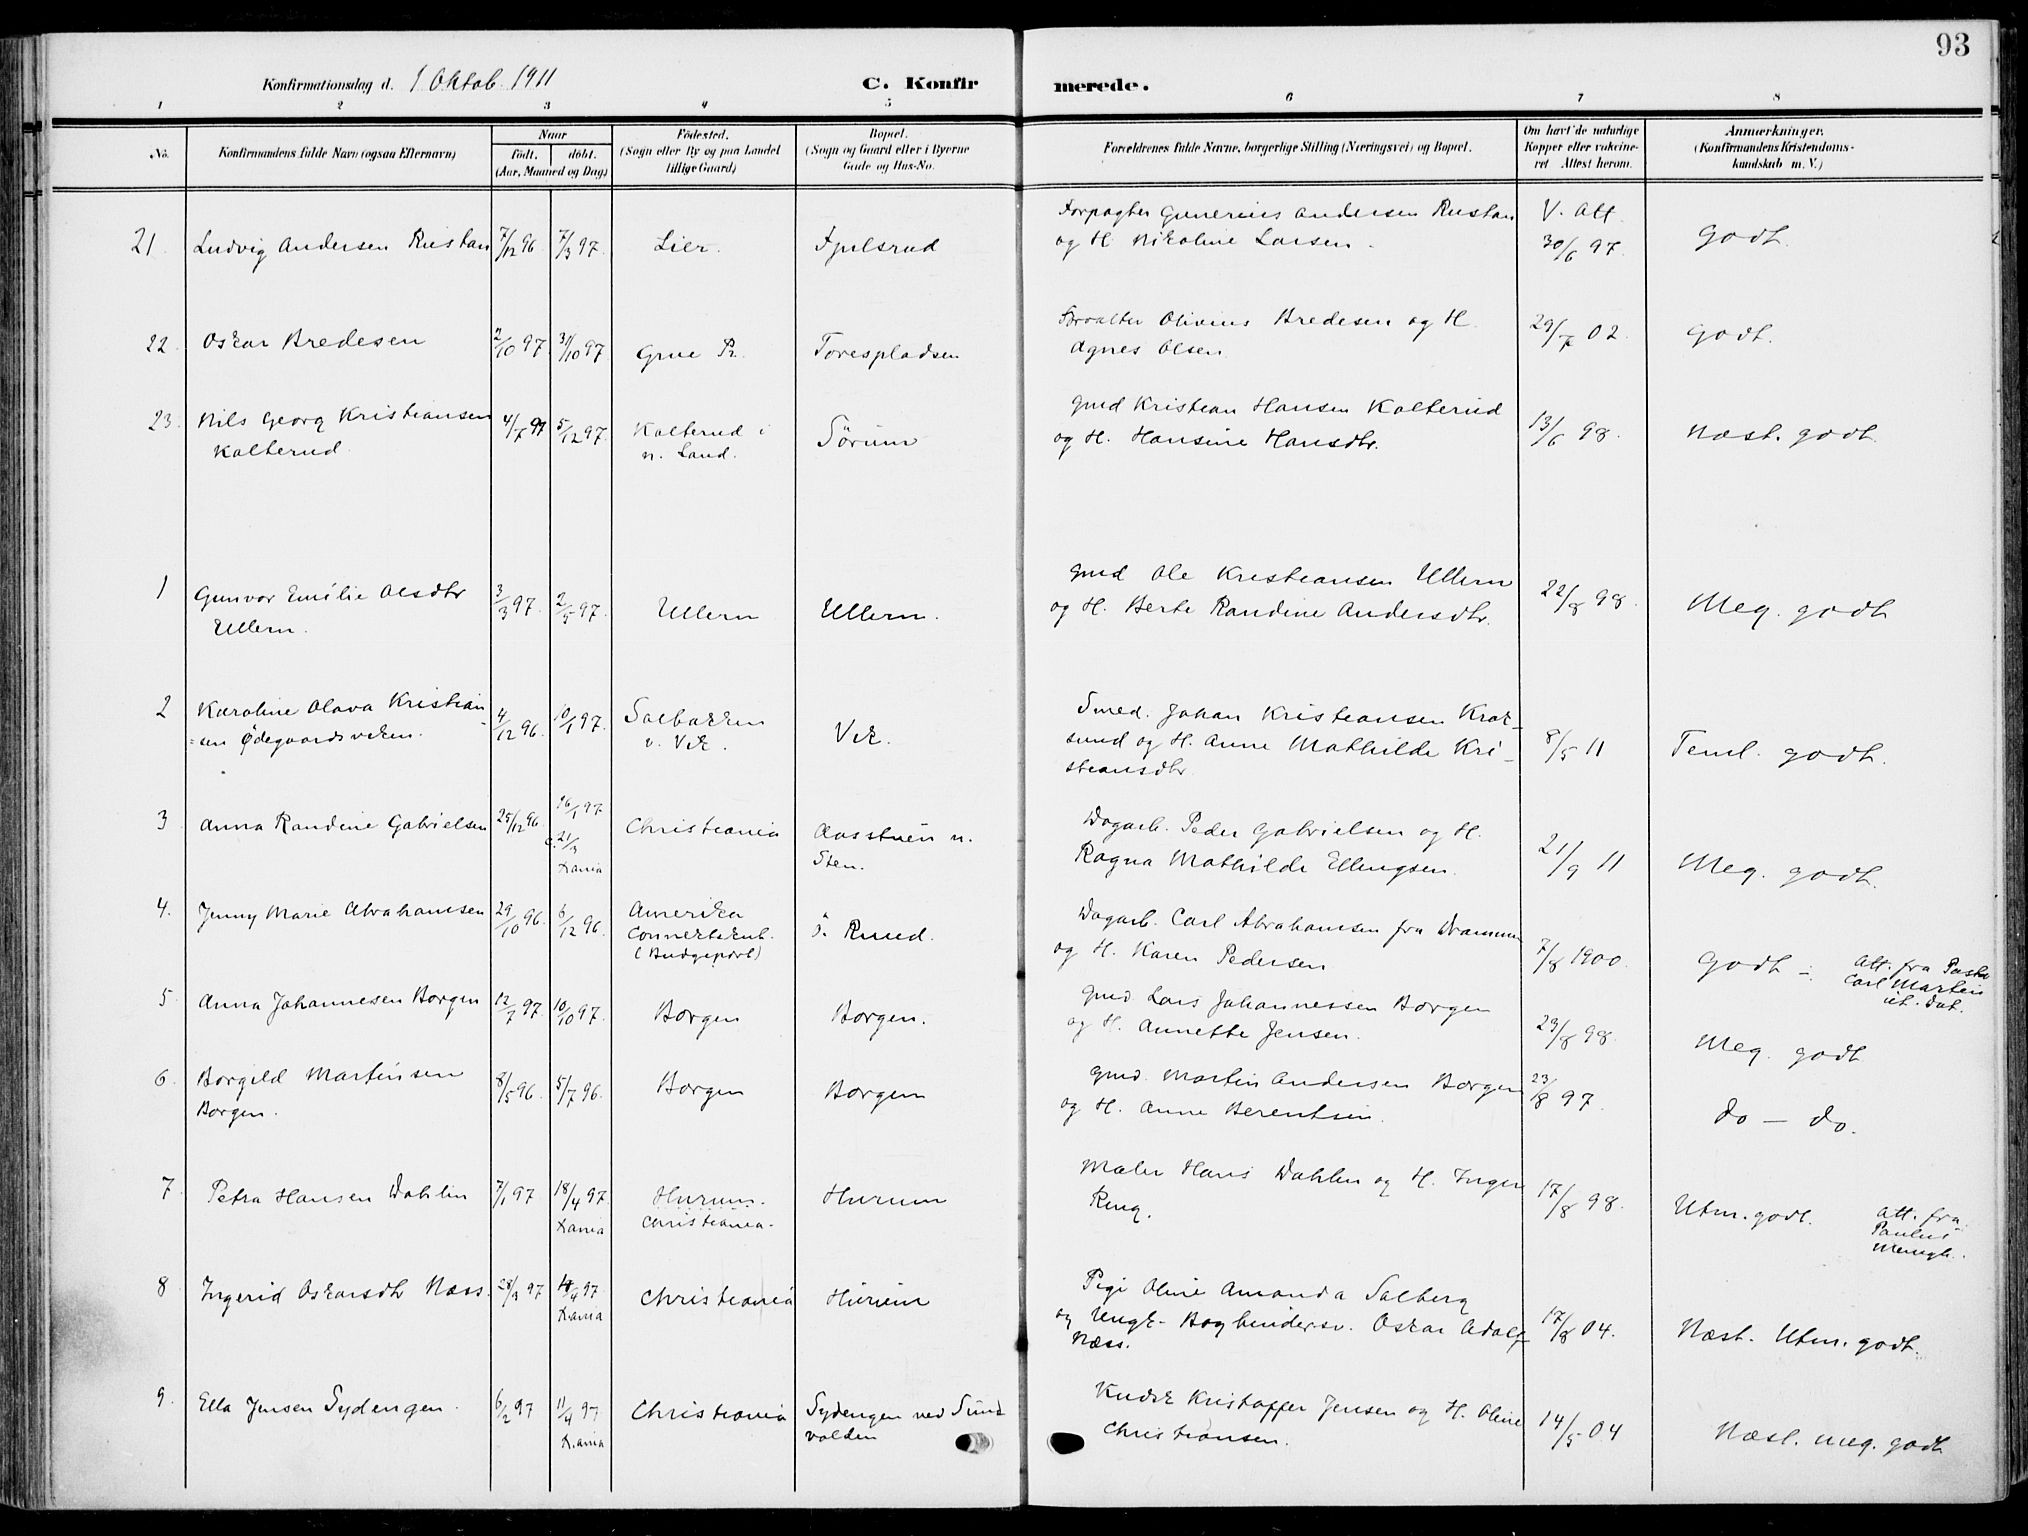 93
Konfirmationsdag d. 1 Oktob. 1911 C. Konfirmerede.
1 2 3 4 5 6 7 8
No. Konfirmandens fulde Navn (ogsaa Efternavn) Naar født. døbt. (Aar, Maaned og Dag) Fødested. (Sogn eller By og paa Landet tillige Gaard) Bopæl. (Sogn og Gaard eller i Byerne Gade og Hus-No. Forældrenes fulde Navne, borgerlige Stilling (Næringsvei) og Bopæl. Om havt de naturlige Kopper eller vakcineret Attest herom. Anmærkninger. (Konfirmandens Kristendomskundskab m. V.)
21. Ludvig Andersen Rustan 7/12 96 7/3 97. Lier. Fjulsrud Forpagter Gunerius Andersen Rustan V. Att
og H. Nikoline Larsen. 30/6 97. Godt.
22. Oskar Bredesen 2/10 97 31/10 97 Grue Pr. Torespladsen Olivius Bredesen og H. 29/7 02. Godt.
Agnes Olsen.
23. Nils Georg Kristiansen 4/7 97 5/12 97. Kalterud i Sørum Gmd Kristian Hansen Kalterud 13/6 98. Næst. godt
Kalterud. n. Land. og H. Hansine Hansdtr.
1 Gunvor Emilie Olsdtr 3/3 97. 2/5 97. Ullern Ullern. Gmd Ole Kristiansen Ullern 22/8 98. Meg. godt
Ullern. og H. Berte Randine Andersdtr.
2 Karoline Olava Kristian- 4/12 96 10/1 97. Solbakken Vik. Smed. Johan Kristiansen Krok-
=sen Ødegaardsviken. v. Vik. sund og H. Anne Mathilde Kri- 8/5 11 Teml. godt.
stiansdtr.
3 Anna Randine Gabrielsen 25/12 96 16/1 97 Christiania Aasstuen n. Dagarb. Peder Gabrielsen og H. 21/9 11 Meg. godt.
c. 21/3 Sten. Ragna Mathilde Ellingsen.
Xania
4. Jenny Marie Abrahamsen 29/10 96 6/12 96. Amerika ö. Ruud. Dagarb. Carl Abrahamsen fra Drammen 7/8 1900. Godt - Att. fra Pastor
og H. Karen Pedersen Carl Martin
(Bridgeport) ut. Dat.
5 Anna Johannesen Borgen 12/7 97 10/10 97. Borgen Borgen. Gmd. Lars Johannessen Borgen 23/8 98. Meg. godt
og H. Annette Jensen.
6. Borgild Martinsen 8/5 96. 5/7 96. Borgen Borgen Gmd. Martin Andersen Borgen 23/8 97. do – do.
Borgen. og H. Anne Berentsen.
7. Petra Hansen Dahlin 7/1 97 18/4 97. Hurum. Hurum Maler Hans Dahlin og H. Inger 17/8 98. Utm. godt. Att. fra
Xania Christiania. Ring. Paulus
Menigh.
8 Ingerid Oskarsdtr Næss. 28/3 97 18/4 97. Christiania Hurum Pigi Oline Amanda Solberg
Xania og Ungk. Bogbindersv. Oskar Adolf 17/8 04. Næst. Utm. godt.
Næss.
9. Ella Jensen Sydengen. 6/2 97 11/4 97 Christiania Sydengen ved Sund- Kudsk Kristoffer Jensen og H. Oline 14/5 04 Næst. meg. godt
Xania volden Christiansen.